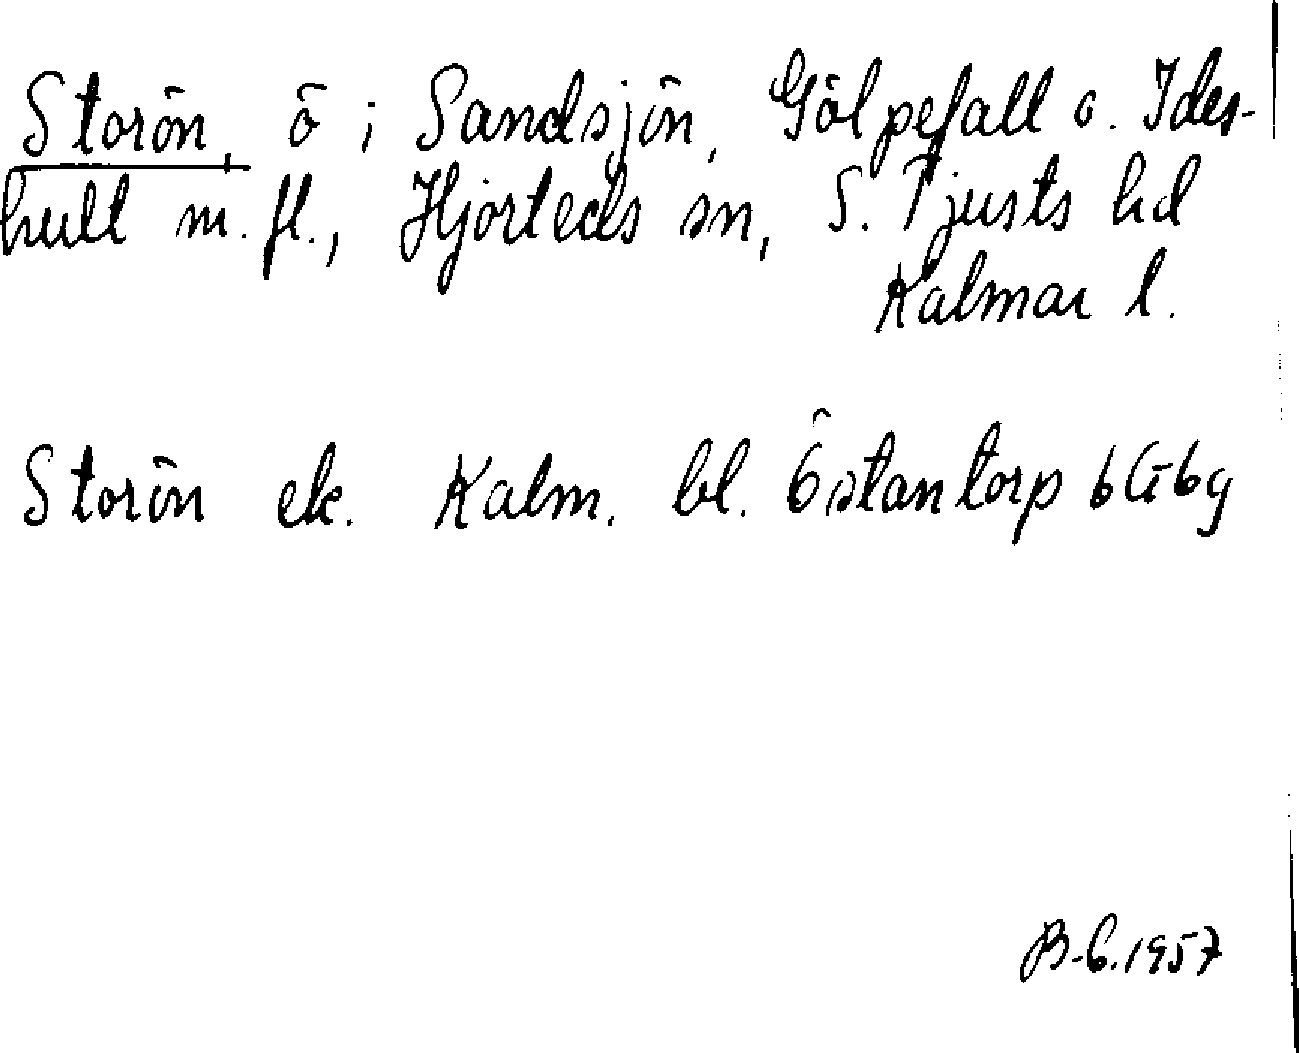 Storön, ö i Sandsjön, Gölpefall o. Ides-
hult m.fl., Hjorteds sn, S. Tjusts hd
Kalmar l.
Storön ek. Kalm. bl. Östantorp 6G6g
B-G.1957